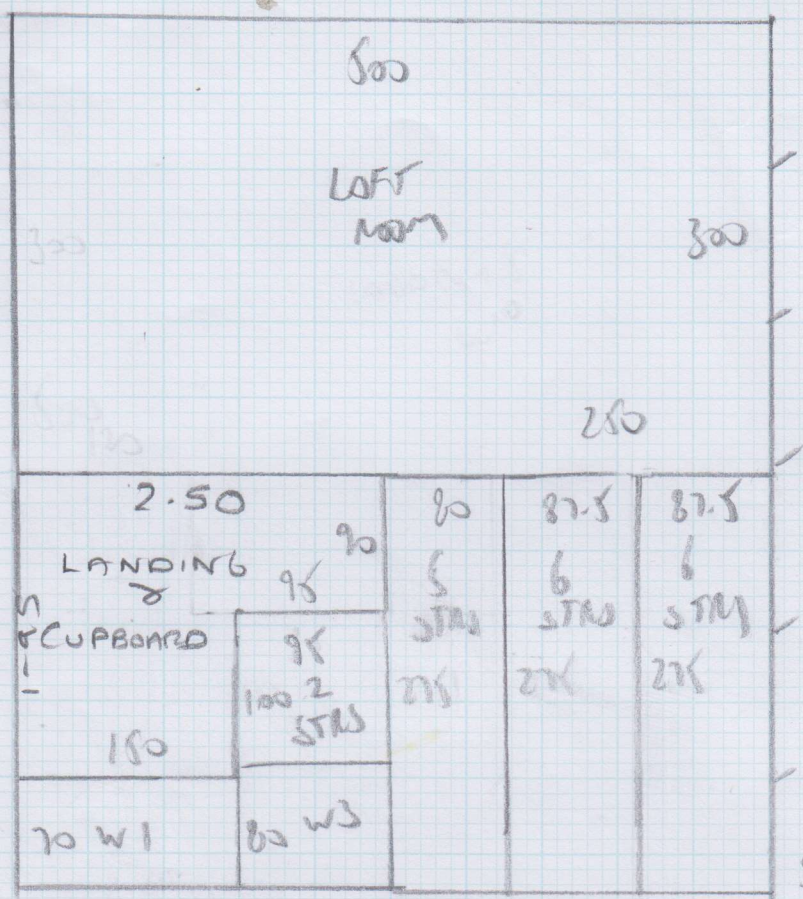 500
LOFT
ROOM
300
250
2.50
90
LANDING
&
CUPBOARD
95
95
100 2
STRS
150
70 W1
80 W3
80
5
STRS
275
87.5
6
STRS
275
87.5
6
STRS
275